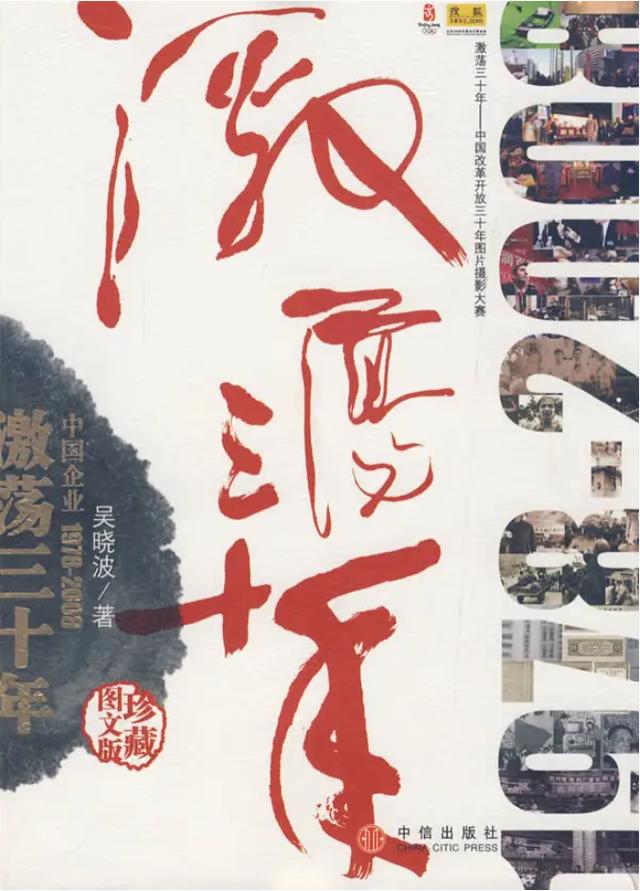 Beijing 2008
搜狐
SOHU.com
激荡三十年——中国改革开放三十年图片摄影大赛
1978-2008
激荡
三十年
中国企业 1978-2008
激荡三十年
吴晓波/著
珍藏
图文版
中信出版社
CHINA CITIC PRESS